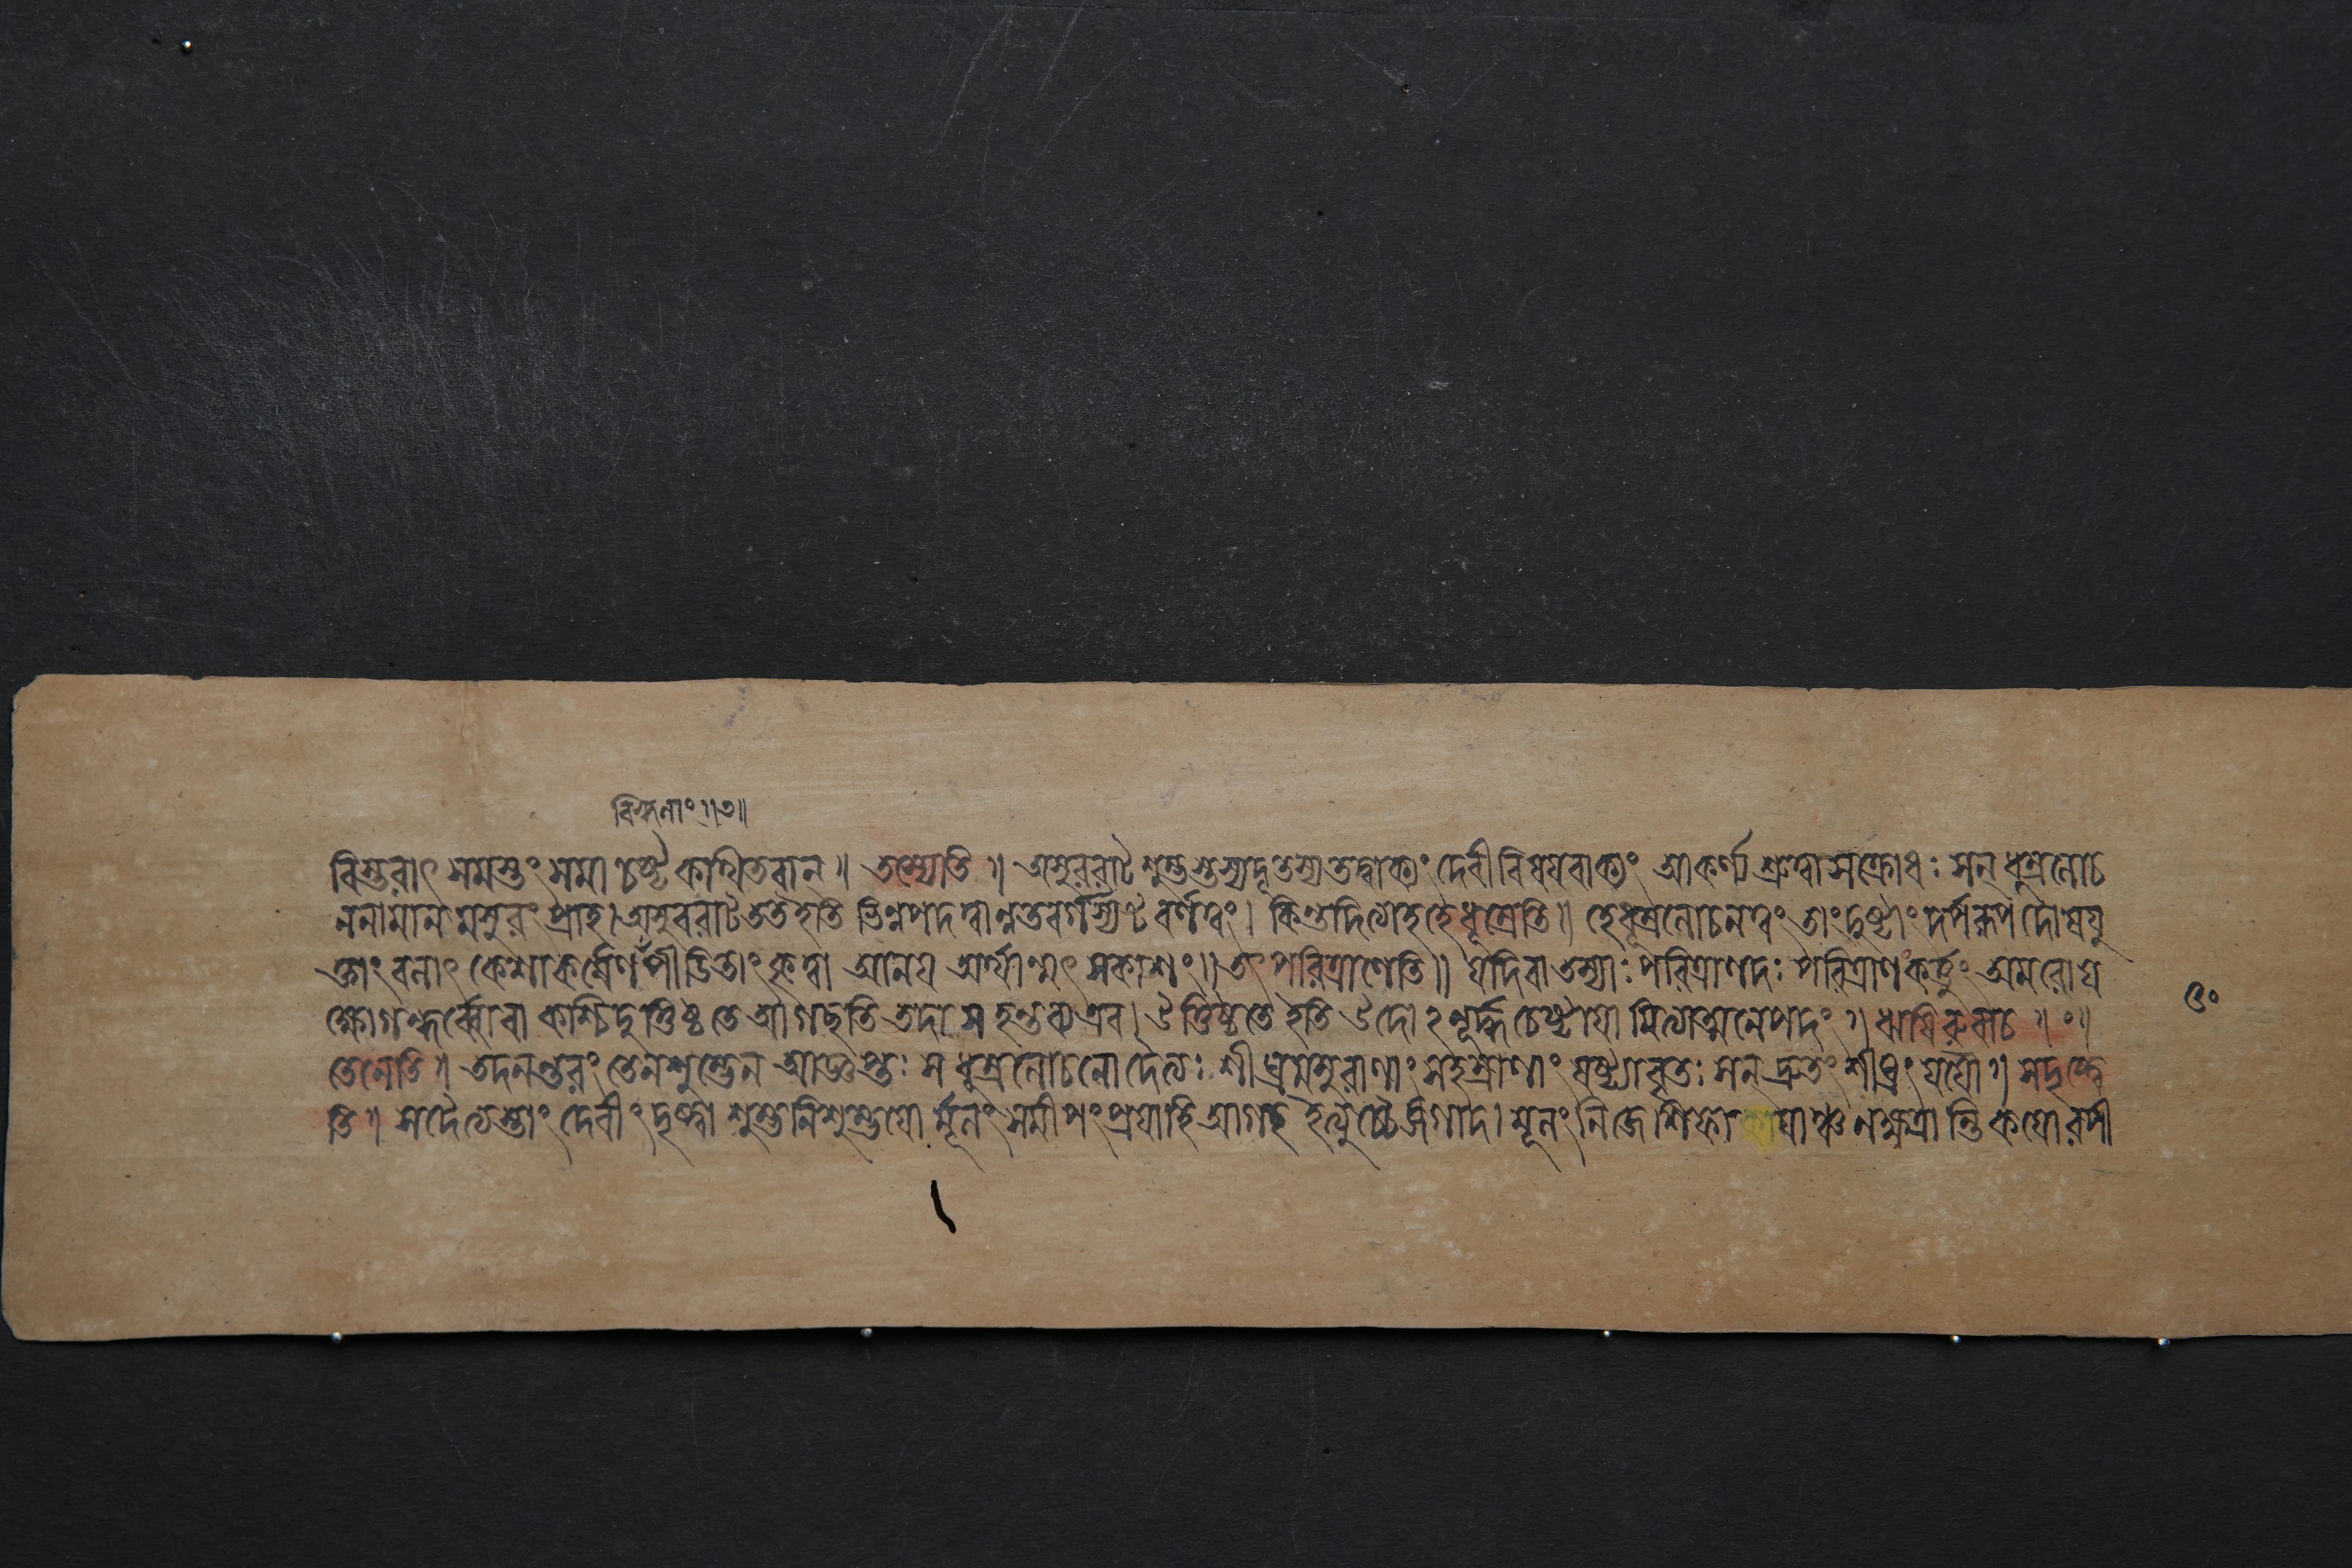 বিস্তরাৎ সমস্তং সমাচষ্ট কথিতবান্ ॥ তস্যেতি ॥ অসুররাট শুম্ভস্তস্যদূতস্য তদ্বাক্যং দেবীবিষয়বাক্যং আকর্ণ্য শ্রুত্বা সক্রোধঃ সন্ ধূম্রলোচ
ননামানমসুরং প্রাহ। অসুররাট ততইতি ভিন্নপদত্বান্নতবর্গস্য বর্ণত্বং। কিন্তদিত্যাহ হে ধূম্রেতি ॥ হে ধূম্রলোচনত্বং তাং দুষ্টাং দোষযু
ক্তাং বলাৎ কেশাকর্ষণ কৃত্বা আনয় সকাশং ॥ তৎপরিত্রাণেতি ॥ যদিবা তস্যাঃ পরিত্রাণদঃ পরিত্রাণকর্ত্তুং অমরোয
ক্ষোগন্ধর্ব্বোবা কশ্চিদুত্তিষ্ঠতে আগছতি তদা স হন্তব্য এব। উত্তিষ্ঠতে ইতি চেষ্টায়ামিত্যাত্মনেপদং ॥ ঋষিরুবাচ ॥ ঃ ॥
তেনেতি ॥ তদনন্তরং তেনশুম্ভেন আজ্ঞপ্তঃ স ধূম্রলোচনোদৈত্যঃ শীঘ্রমসুরাণাং সহস্রাণাং ষষ্ট্যাবৃতঃ সন্ দ্রুতং শীঘ্রং যযৌ ॥ সদৃষ্ট্বে
তি ॥ সদৈত্যস্তাং দেবীং দৃষ্ট্বা শুম্ভনিশুম্ভয়োর্মূলং সমীপং প্রযাহি আগছ ইত্যুচ্চৈর্জগাদ। মূলং
৫০